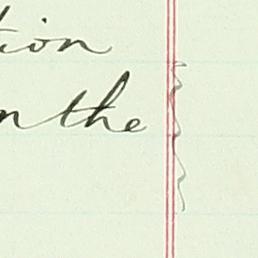 tion
n the